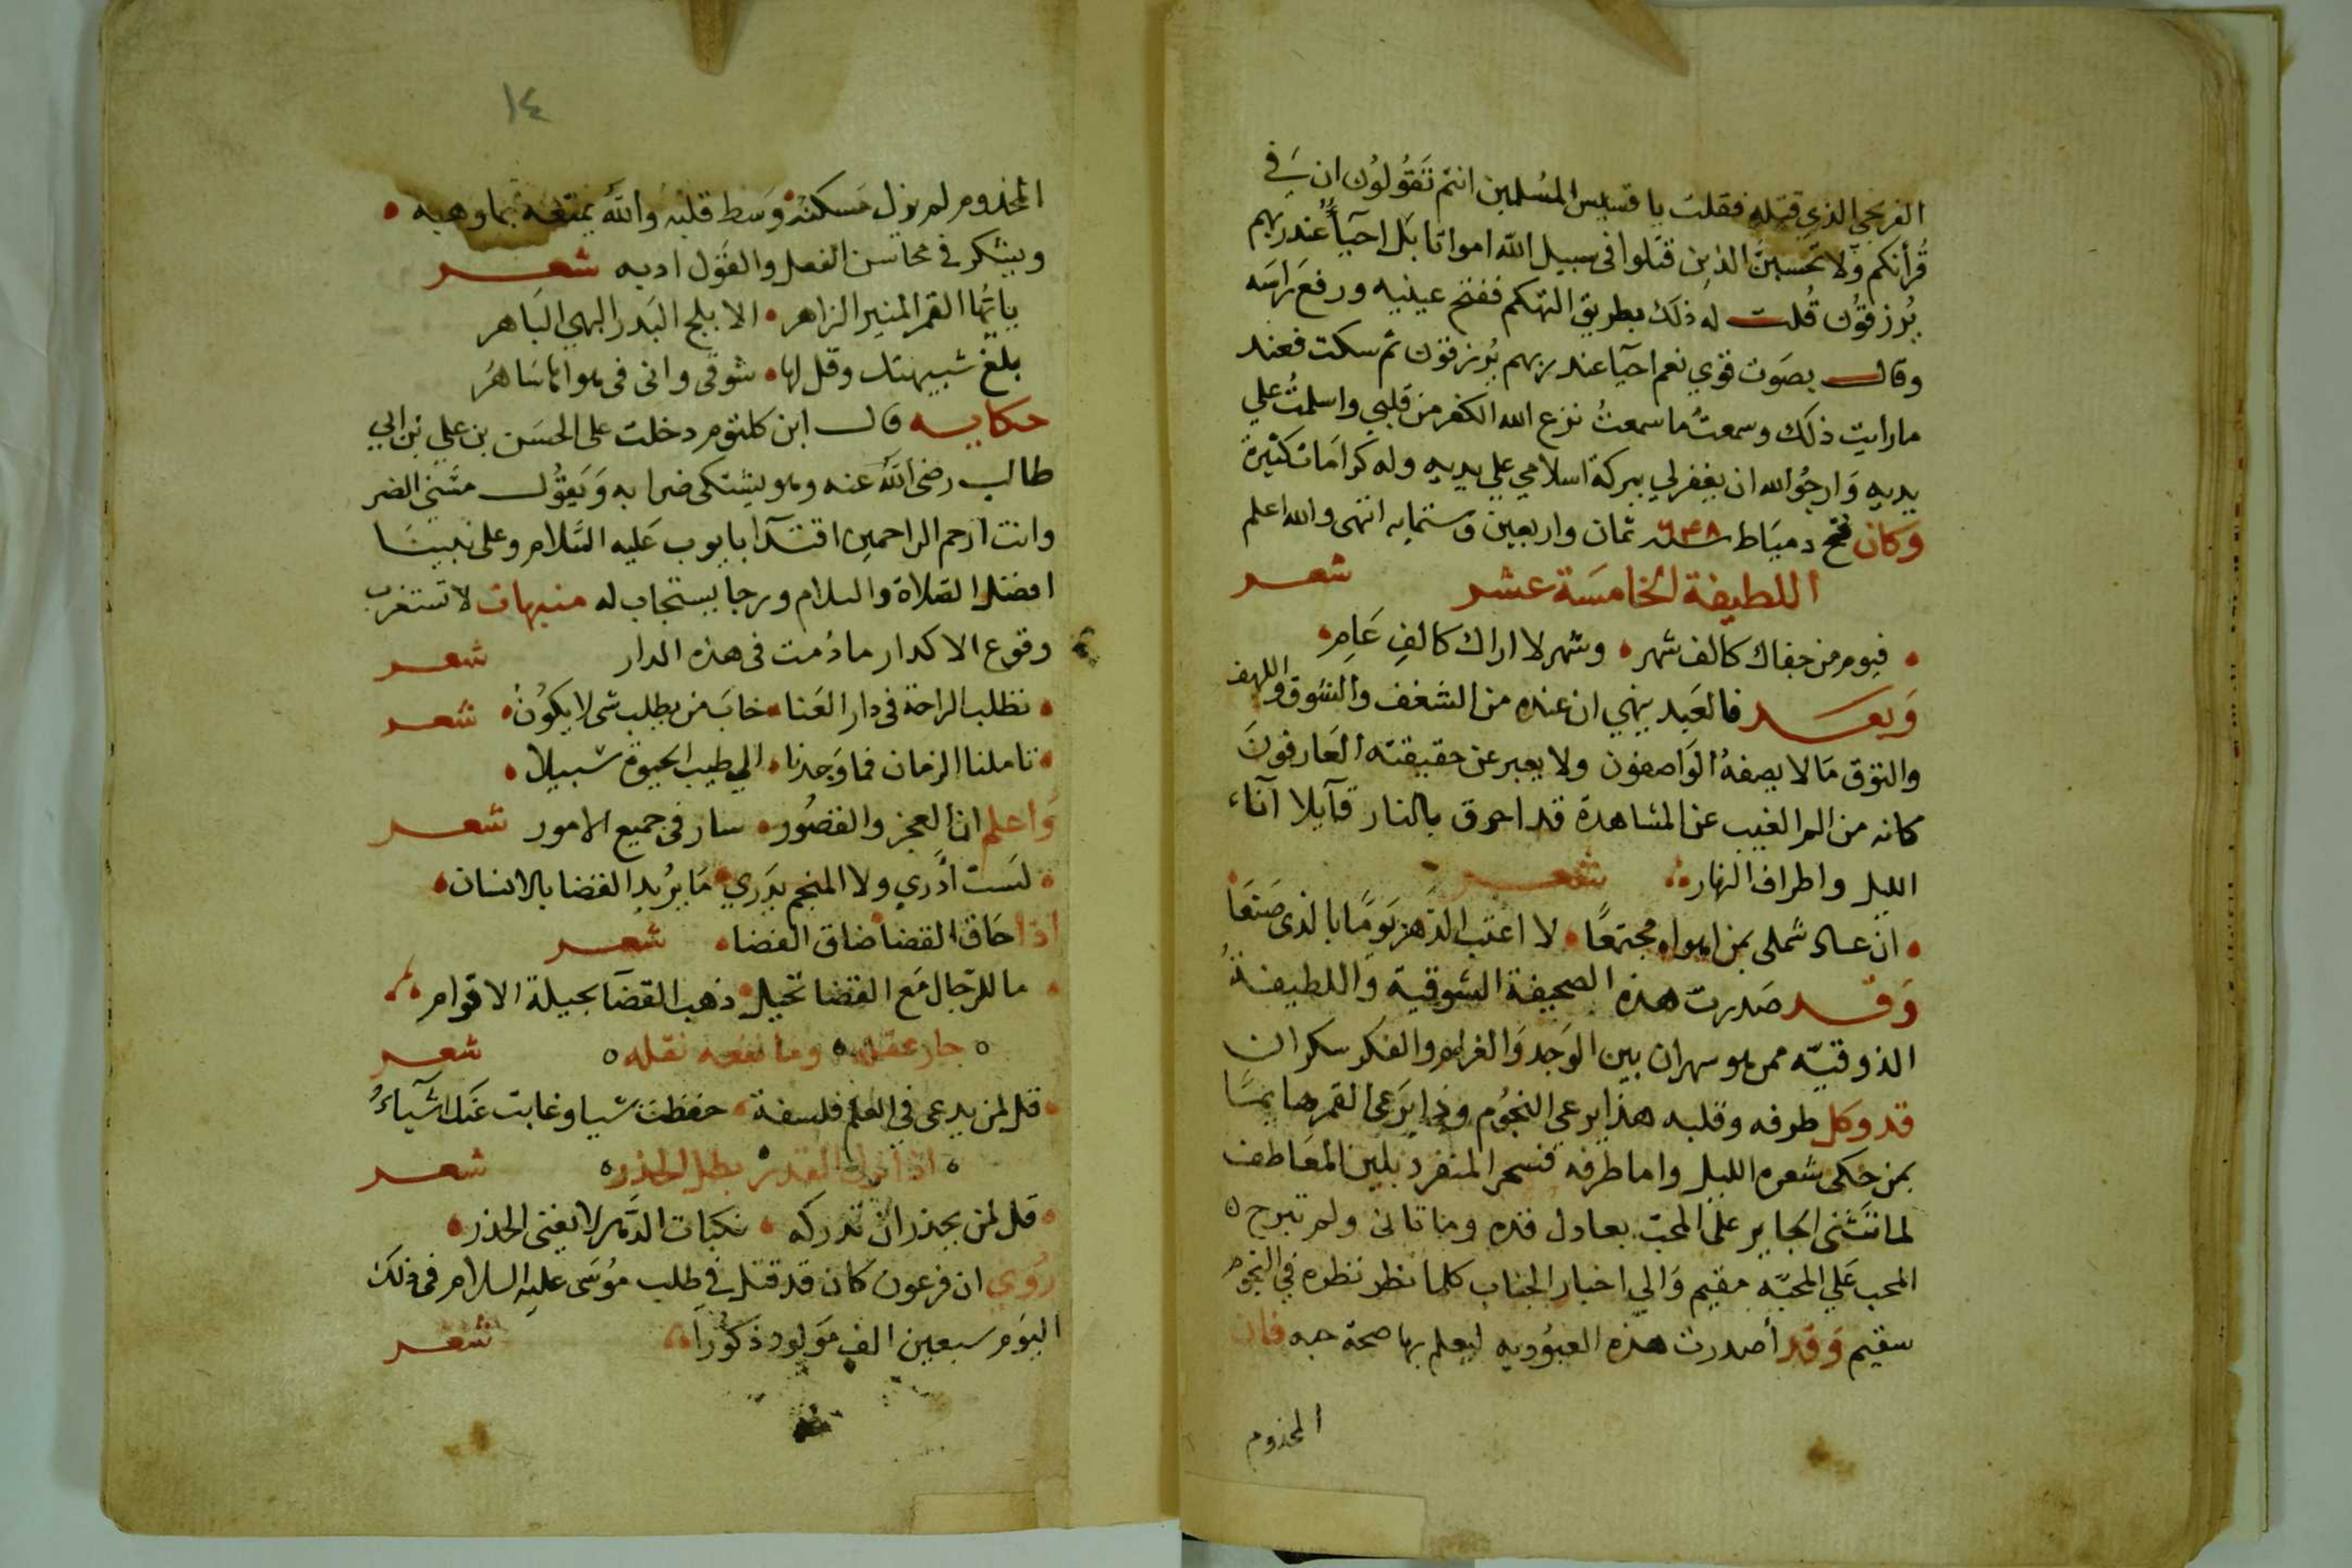 الفرنجي الذي قتله فقلت يا قسيس المسلمين انتم تَقُولُون ان في
قُرأنكم وَلا تحسبنّ الذين قتلوا فى سبيل الله امواتا بَل احيآءٌ عند ربهم
يُرزقوُن قُلت له ذلك بطريق التهكم ففتح عينيه ورفع راسَه
وقال بصَوت قوي نعم احيآ عند ربهم يُرزقون ثم سكت فعند
ما رايت ذلك وسمعتُ ما سمعتُ نزع الله الكفر من قلبي واسلمتُ علي
يديهِ وَارجُوا الله ان يغفرلي ببركة اسلامي علي يديه وله كرَامَات كثيرة
وَكان فتح دميَاط سنة ٦٤٨ ثمان واربعين وستمايه انتهى والله اعلم
اللطيفة الخامسَة عشر شعر
فيوم من جفاك كالف شهر وشهر لا اراك كالفِ عَامِ
وَبعد فالعَبد ينهي ان عنده من الشغف والشوق واللهف
والتوق مَا لا يصفهُ الوَاصفون ولا يعبر عن حقيقته العَارفونَ
كانه من الم الغيب عن المشاهدة قد احرق بالنار قآيلا آناء
الليل واطراف النهار شعر
ان عاد شملى بمن اهواه مجتمعًا لا اعتب الدَهر يَومًا بالذى صَنعَا
وَقد صَدرت هذه الصحيفة الشوقية وَاللطيفةُ
الذوقيّه ممن هو سهران بين الوَجد وَالغرام والفكر سكران
قد وكل طرفه وقلبه هذا يرعي النجُوم وذا يَرعى القمر هايمًا
بمن حكى شعره الليل واما طرفه فسحر المنفرد بلين المعَاطف
لما تثنى الجاير على المحبّ بعادل قده وما تانى ولم تبرح
المحب عَلي المحبَّه مقيم وَالي اخبار الجناب كلما نظر نظره في النجوم
سقيم وَقد أصدرت هذه العبوُديه ليعلم بها صحة حبه فان
المخذوم
١٤
المخذوم لم يزل مَسكنهُ وَسط قلبه واللهُ يمتعه بما وهبه
ويشكر في محاسن الفعل والقَول ادبه شعر
يا يُّها القمر المنير الزاهر الا بلج البَدر البهي البَاهر
بلغ شبيهتك وقل لها شوقى وانى فى هواها سَاهرُ
حكايه قال ابن كلتوم دخلت على الحسَن بن علي بن ابي
طالب رضى اللهُ عنه وهو يشتكى ضرا به وَيَقوُل مسَّنى الضر
وانت ارحم الراحمين اقتدآ بايوب عَليه السَّلام وعلى نبينَا
افضل الصَلاة والسلام ورجا يستجاب له منبهات لا تستغرب
وقوع الاكدار ما دُمت فى هذه الدار شعر
نطلب الراحة في دار العَنا خابَ من يطلب شى لا يكوُن شعر
تاملنا الزمان فما وَجدنا الي طيب الحيوة سبيلا
وَاعلم ان العجز والقصُور سار فى جميع الامور شعر
لسَت أدري ولا المنجم يدَري مَا يرُيد القضا بالانسان
اذا حَاق القضا ضاق الفضا شعر
ما للرّجال مَع القضا تحيل ذهب القضآ بحيلة الاقوام
جار عقله وما نفعه نقله شعر
قل لمن يدعى في العلم فلسفة حفظت شيا وغابت عَنك اشيآءُ
اذا نزل القدر بطل الحذر شعر
قل لمن يحذر ان تدركه نكبات الدَّهر لا يغنى الحذر
رُوي ان فرعون كان قد قتل في طلب موُسَى عليه السلام فى ذلك
اليَوم سبعين الف مَولود ذكوُراً شعر